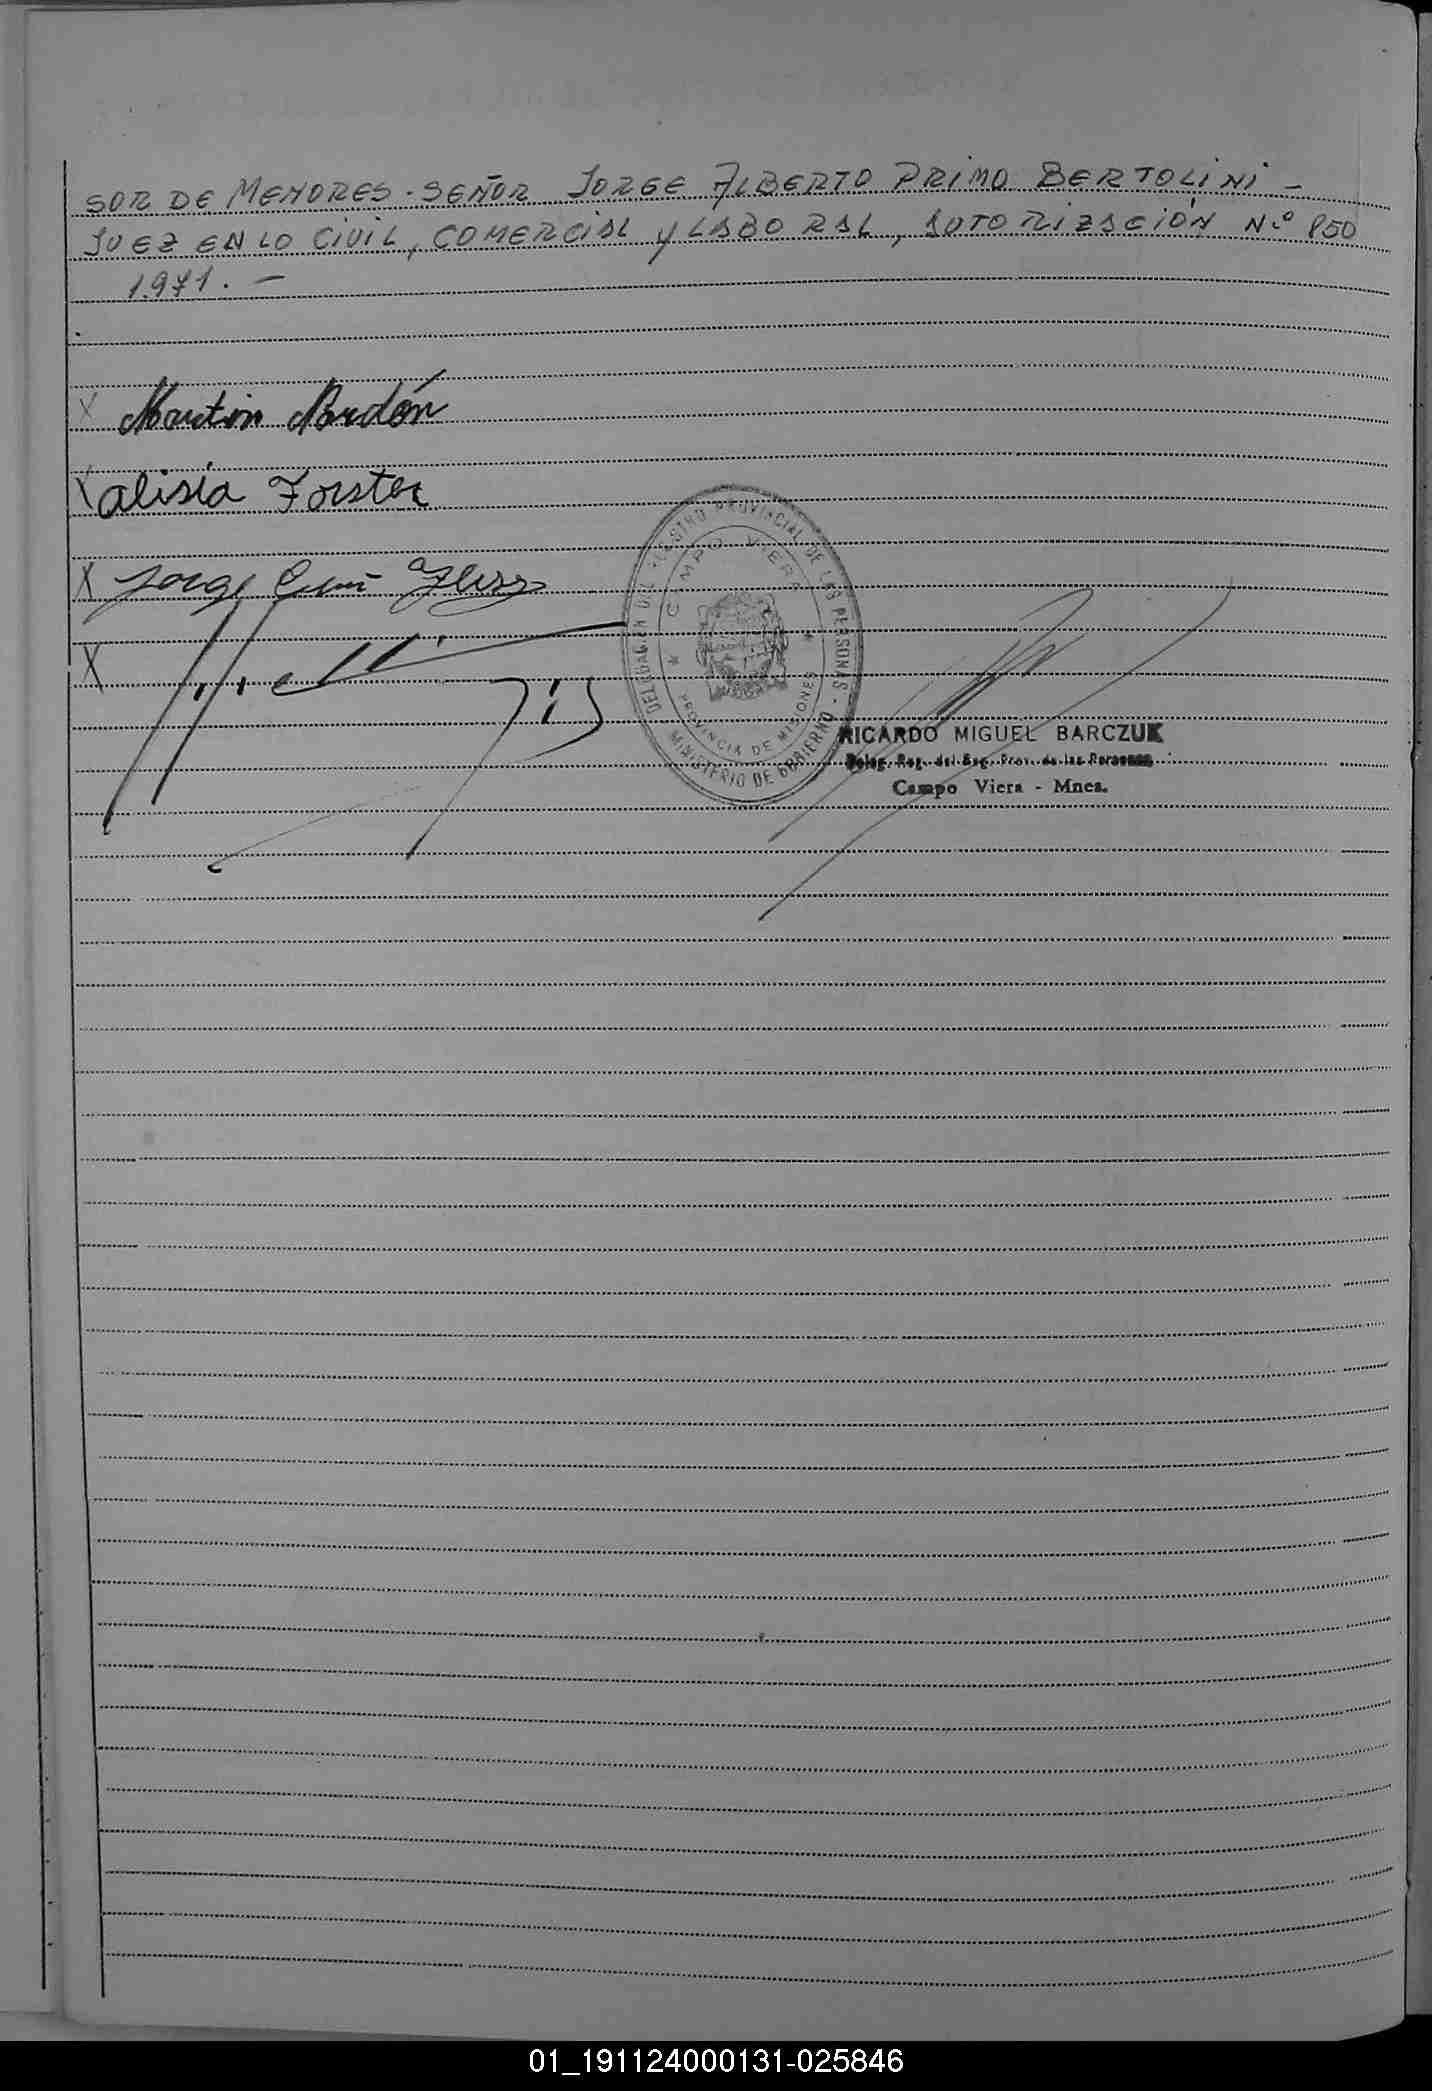 SOR DE MENORES. SEÑOR JORGE ALBERTO PRIMO BERTOLINI -
JUEZ EN LO CIVIL, COMERCIAL y LABORAL, AUTORIZACIÓN N.º 850
1.971. -
X Martin
X alisia Forster
X Jorge
X
DEL REGISTRO PROVINCIAL DE LAS PERSONAS - MINISTERIO DE GOBIERNO
CAMPO VIERA
PROVINCIA DE MISIONES
RICARDO MIGUEL BARCZUK
Deleg. Reg. del Reg. Prov. de las Personas
Campo Viera - Mnes.
01_191124000131-025846